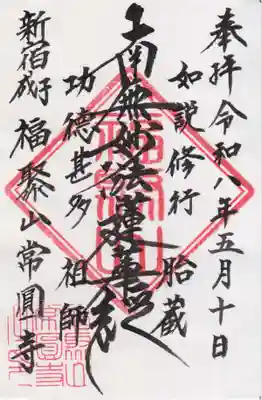 奉拝 令和八年五月十日
如説修行 胎蔵
南無妙法蓮華経
功徳甚多 祖師
新宿成子 福聚山 常圓寺
福聚山